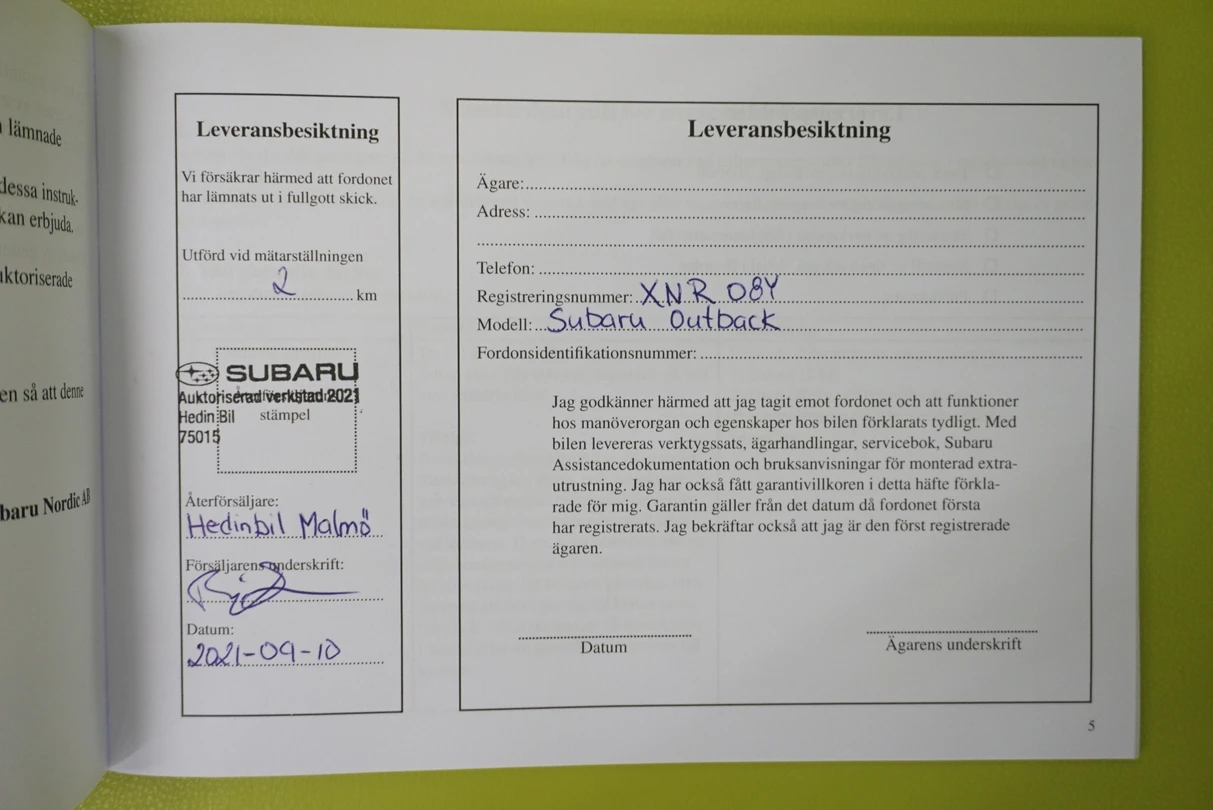 lämnade
dessa instruk-
kan erbjuda.
uktoriserade
en så att denne
baru Nordic AB
Leveransbesiktning
Vi försäkrar härmed att fordonet
har lämnats ut i fullgott skick.
Utförd vid mätarställningen
2 km
SUBARU
Auktoriserad verkstad 2021
Hedin Bil
stämpel
75015
Återförsäljare:
Hedinbil Malmö
Försäljarens underskrift:
Datum:
2021-09-10
Leveransbesiktning
Ägare:
Adress:
Telefon:
Registreringsnummer: XNR 08Y
Modell: Subaru Outback
Fordonsidentifikationsnummer:
Jag godkänner härmed att jag tagit emot fordonet och att funktioner
hos manöverorgan och egenskaper hos bilen förklarats tydligt. Med
bilen levereras verktygssats, ägarhandlingar, servicebok, Subaru
Assistancedokumentation och bruksanvisningar för monterad extra-
utrustning. Jag har också fått garantivillkoren i detta häfte förkla-
rade för mig. Garantin gäller från det datum då fordonet första
har registrerats. Jag bekräftar också att jag är den först registrerade
ägaren.
Datum
Ägarens underskrift
5